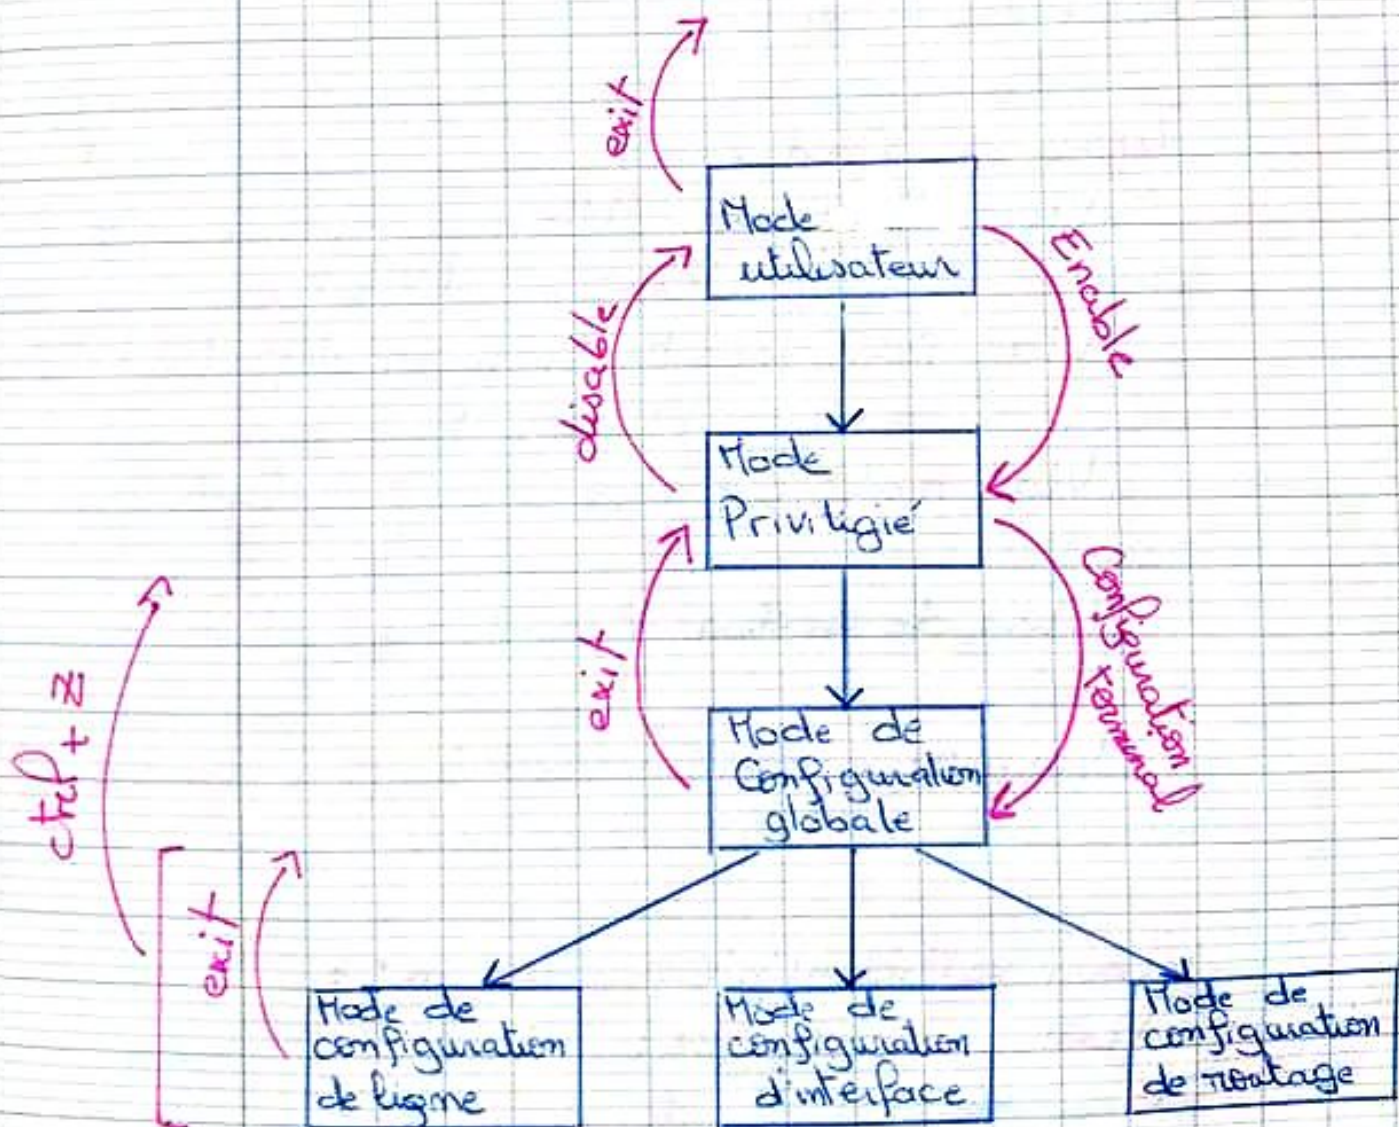 exit
Mode
utilisateur
Enable
disable
Mode
Priviligié
Configuration
terminal
exit
ctrl + z
Mode de
Configuration
globale
exit
Mode de
configuration
de ligne
Mode de
configuration
d'interface
Mode de
configuration
de routage